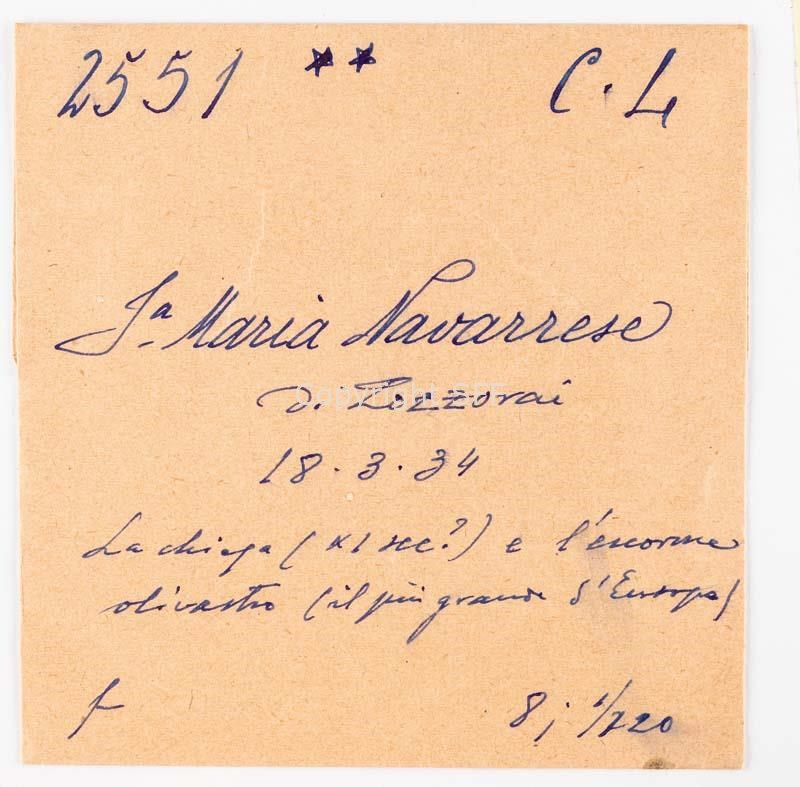 2551 ** C. L
Sa Maria Navarrese
di Lozzorai
18.3.34
La chiesa (XI sec?) e l'enorme
olivastro (il più grande d'Europa)
f 8; 1/220